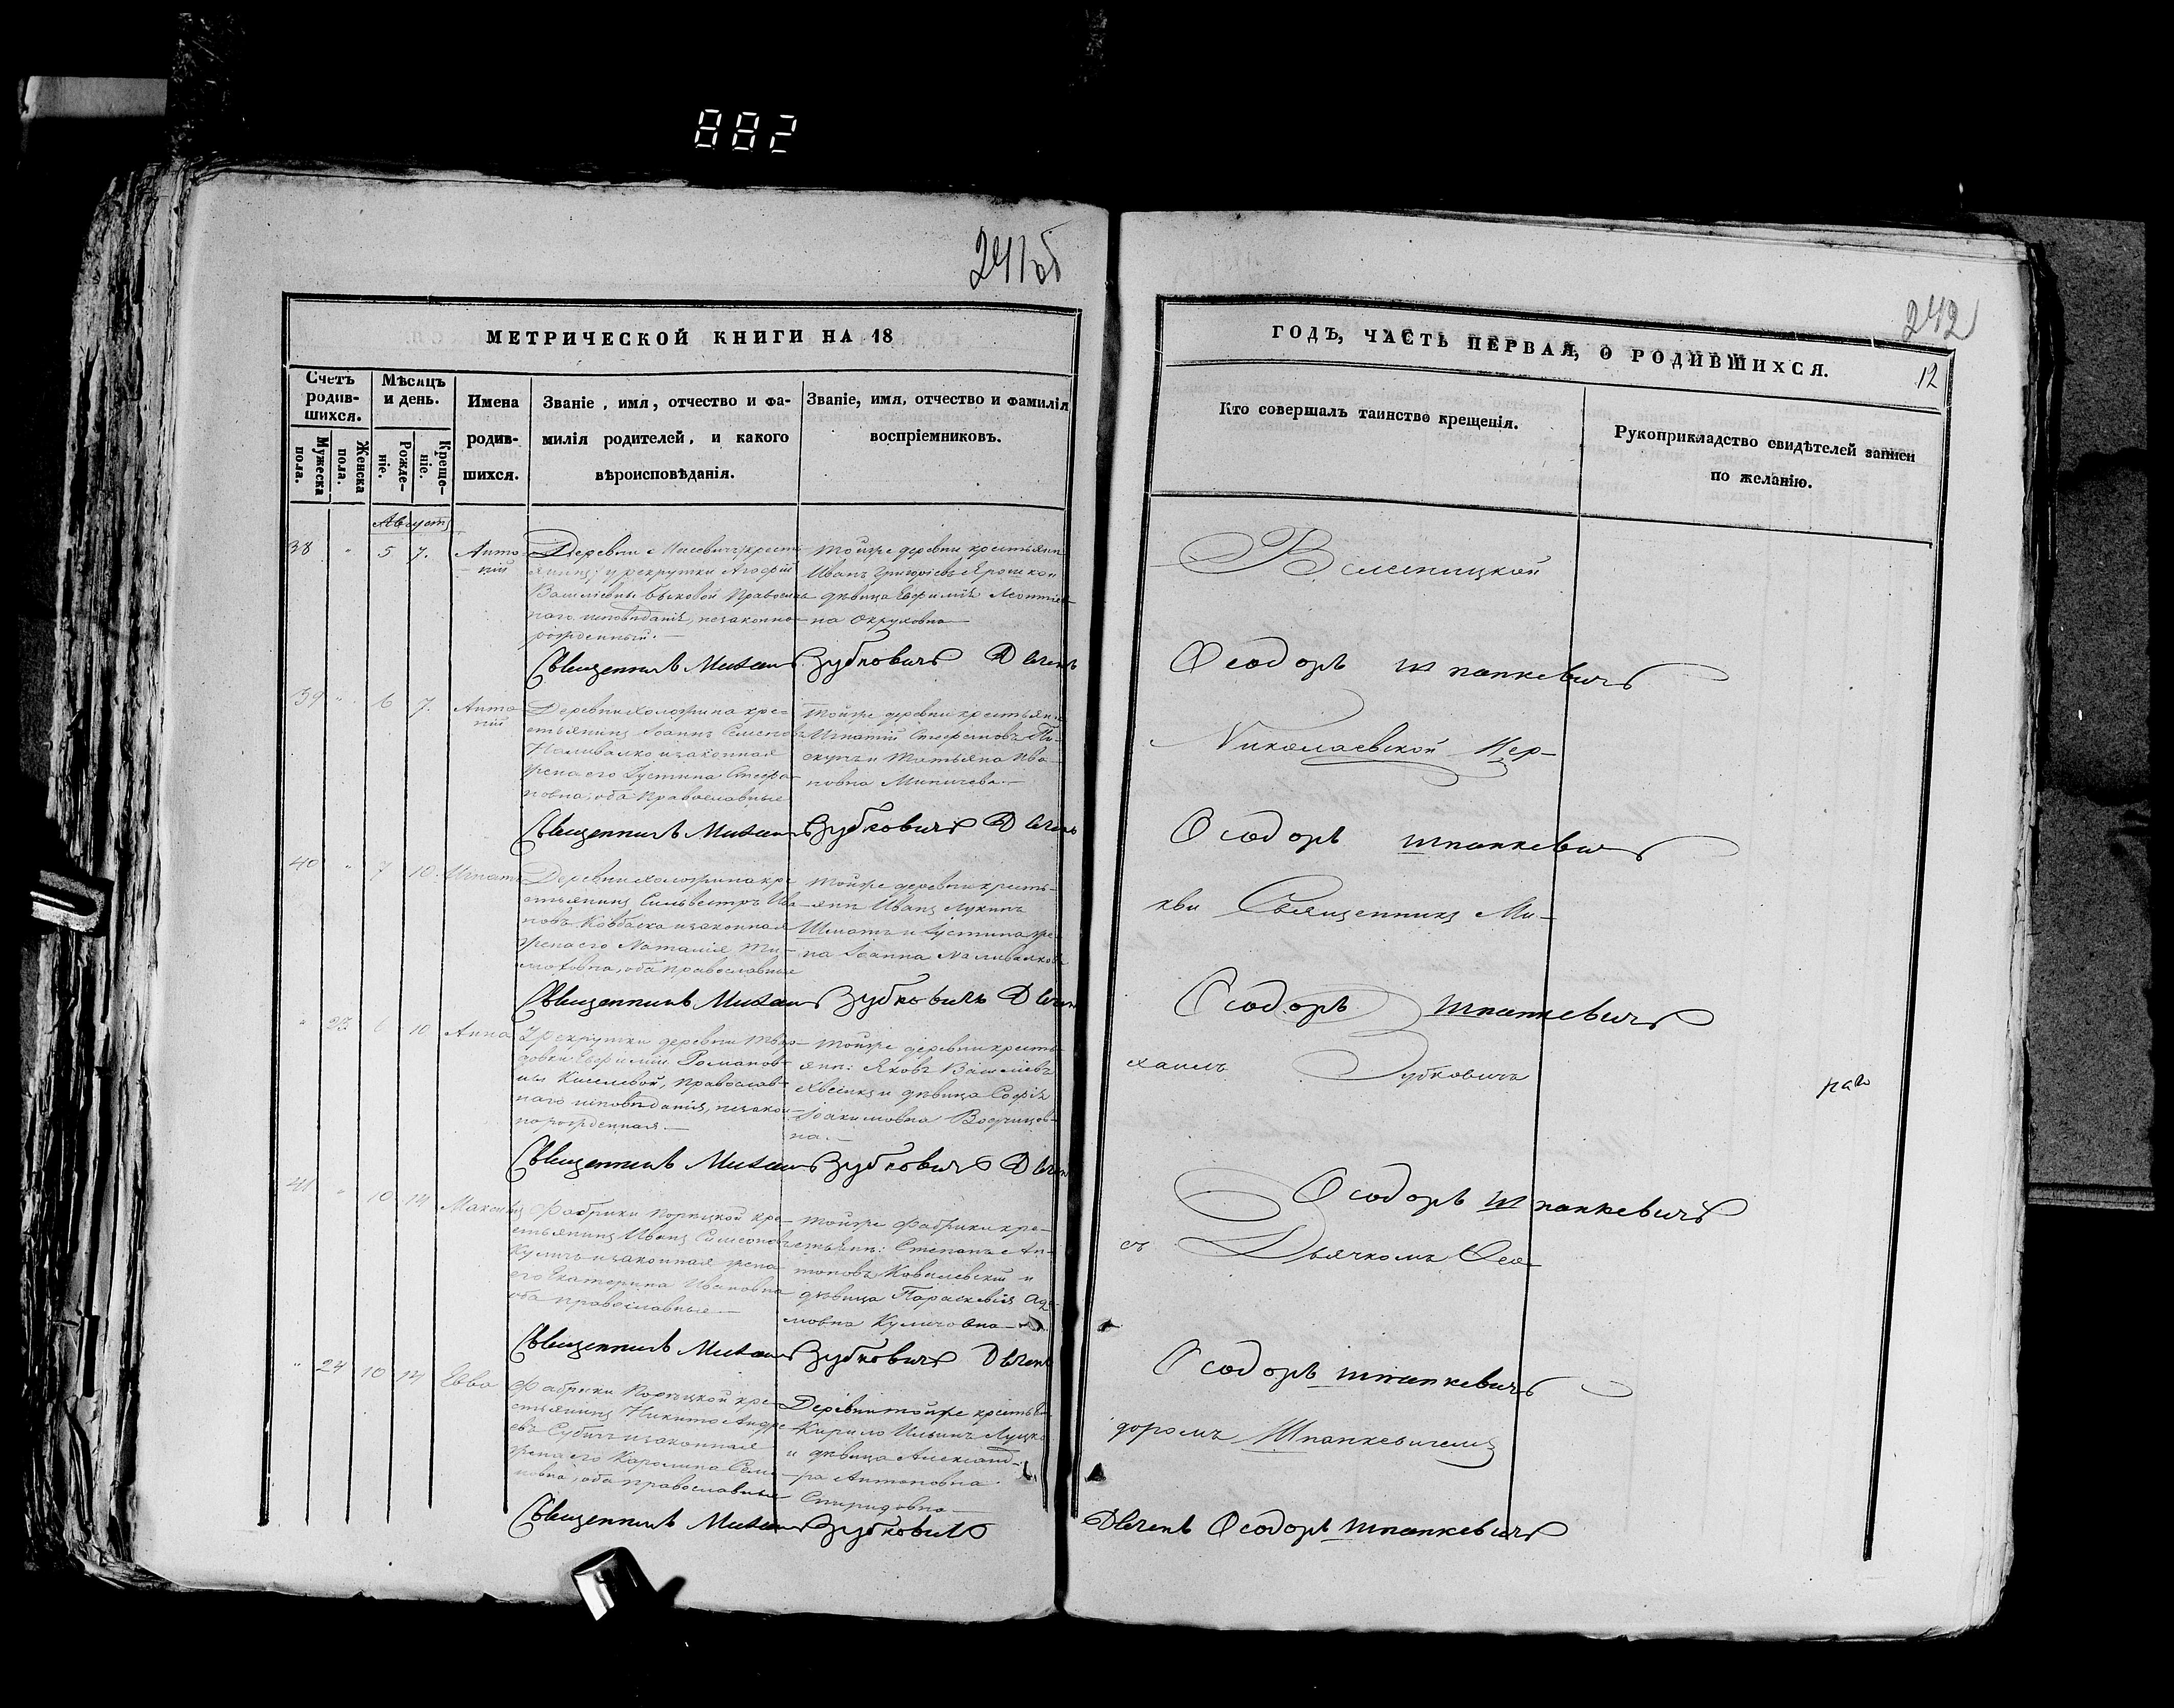 882
242
МЕТРИЧЕСКОЙ КНИГИ НА 18
Счетъ родив-шихся.
Мужеска пола.
Женска пола.
Мѣсяцъ и день.
Рожде-ніе.
Креще-ніе.
Имена
родив-
шихся.
Званіе, имя, отчество и фа-
милія родителей, и какого
вѣроисповѣданія.
Званіе, имя, отчество и фамилія
воспріемниковъ.
Августъ
38 " 5 7. Анто-
ній
Деревни
янинъ: у рекрутки Агафіи
Василіевны Быковой Православ-
наго исповѣданія, незаконно-
рожденный.
тойже деревни крестьянин
Иванъ Григоріевъ Ярошкоп
дѣвица Евфимія Леонтіев-
на
Священникъ Михаилъ Зубковичъ Дьячекъ
39 " 6 7. Анто-
ній
Деревни Холожина кре-
стьянинъ Іоаннъ Семенов
Наливалко и законная
жена его Іустина Стефа-
новна, оба православные
тойже деревни крестьянин
Игнатій Стефановъ Пи-
скунъ и Татьяна Ива-
новна
Священникъ Михаилъ Зубковичъ Дьячекъ
40 " 7 10 Игнатій
Деревни Холожина кре-
стьянинъ Сильвестръ Ива-
новъ Ковбаска и законная
жена его Наталія Ти-
моховна, оба православные
тойже деревни кресть-
янн Иванъ Лукинъ
Шматъ и Іустина же-
на Іоанна Наливалкова
Священникъ Михаилъ Зубковичъ Дьячекъ
" 23 6 10 Анна
У рекрутки деревни
Евфиміи Романов-
ны Киселевой, православ-
наго исповѣданія, незакон-
норожденная.
тойже деревни кресть-
янн: Яковъ Василіевъ
и дѣвица Софія
Іоакимовна
на.
Священникъ Михаилъ Зубковичъ Дьячекъ
41 " 10 14 Максимъ
Фабрики Порѣцкой кре-
стьянинъ Иванъ Симеоновъ
Куличъ и законная жена
его Екатерина Ивановна
оба православные
тойже Фабрики кре-
стьянн: Степанъ Ан-
тоновъ Ковалевскій и
дѣвица Параскевія Ада-
мовна Куличовна
Священникъ Михаилъ Зубковичъ Дьячекъ
" 24 10 14 Евва
Фабрики Порѣцкой кре-
стьянинъ Никита Андре-
евъ Субичъ и законная
жена его Каролина Семе-
новна, оба православные
Деревни тойже крестьян
Кирило Ильинъ Луцко
и дѣвица Александ-
ра Антоновна
Спиридовна
Священникъ Михаилъ Зубковичъ
242
ГОДЪ, ЧАСТЬ ПЕРВАЯ, О РОДИВШИХСЯ.
12
Кто совершалъ таинство крещенія.
Рукоприкладство свидѣтелей записи
по желанію.
Ѳеодоръ Шпанкевичъ
Николаевской Цер-
Ѳеодоръ Шпанкевичъ
кви Священникъ Ми-
Ѳеодоръ Шпанкевичъ
хаилъ Зубковичъ
Ѳеодоръ Шпанкевичъ
съ Дьячкомъ Ѳео-
Ѳеодоръ Шпанкевичъ
доромъ Шпанкевичемъ
Дьячекъ Ѳеодоръ Шпанкевичъ